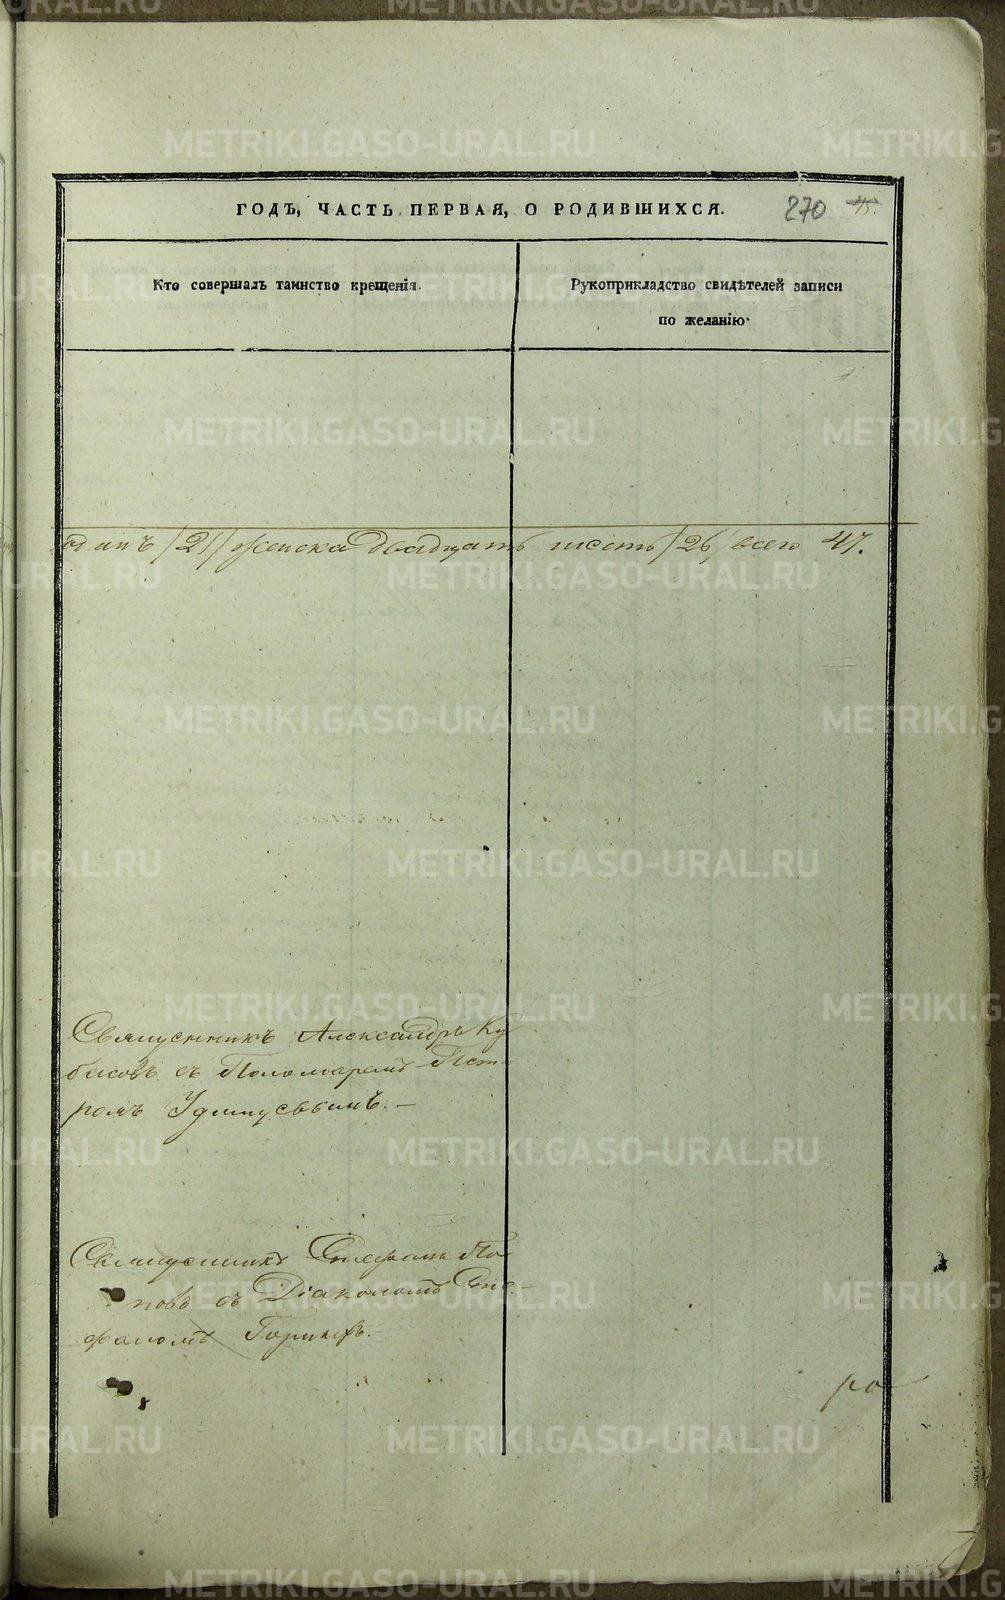 ГОДЪ, ЧАСТЬ ПЕРВАЯ, О РОДИВШИХСЯ. 270 45.
Кто совершалъ таинство крещенія.
Рукоприкладство свидѣтелей записи
по желанію.
одинъ /21/ женска двадцать шесть /26/ всего 47.
Священникъ Александръ Ку
басовъ съ Пономаремъ Пет
ромъ Удинцевымъ.—
Священникъ Стефанъ По
повъ съ Діакономъ Сте-
фаномъ
METRIKI.GASO-URAL.RU